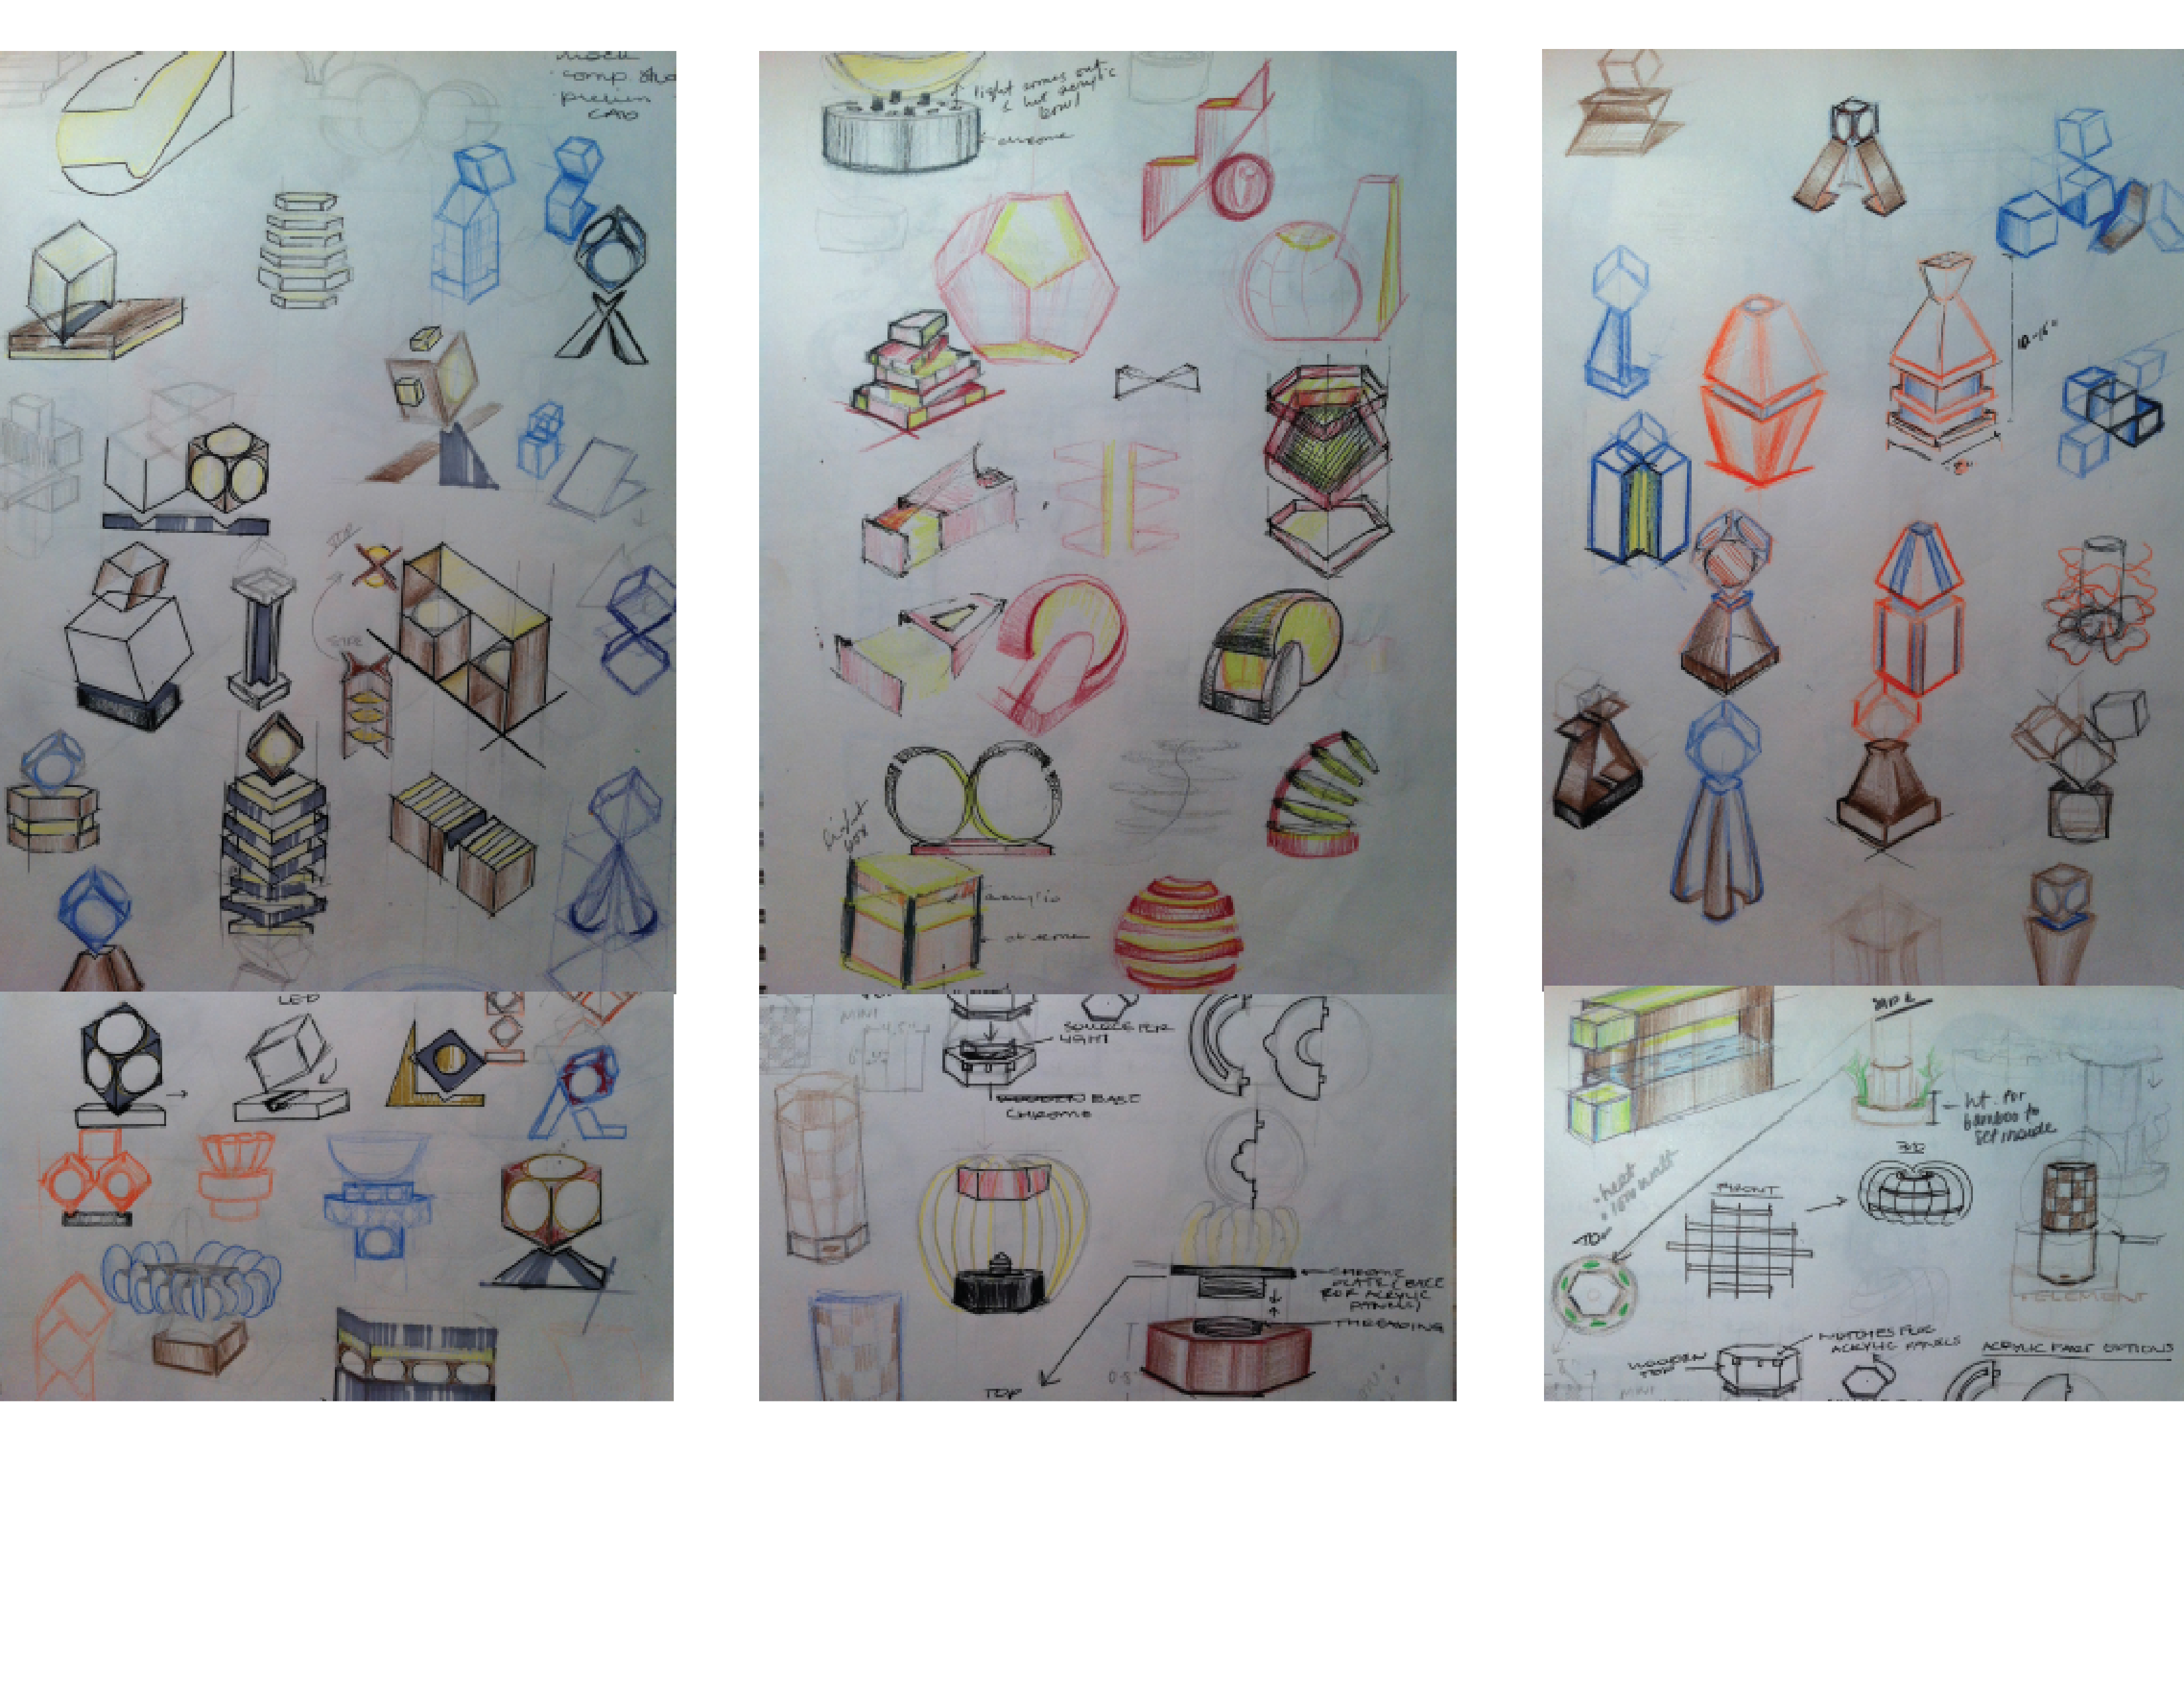 mock
comp. stud
prelim
CAD
TOP
SIDE
LED
light comes out
& hit acrylic
bowl
chrome
light
box
acrylic
chrome
MINI
4.5"
6"
SOURCE FOR
LIGHT
WOODEN BASE
CHROME
CHROME
PLATE (BASE
FOR ACRYLIC
PANELS)
THREADING
TOP
0.5
12-15"
8"
SIDE
ht. for
bamboo to
set inside
heat
low watt
3D
FRONT
TOP
ELEMENT
NOTCHES FOR
ACRYLIC PANELS
WOODEN
TOP
ACRYLIC PART OPTIONS
MINI